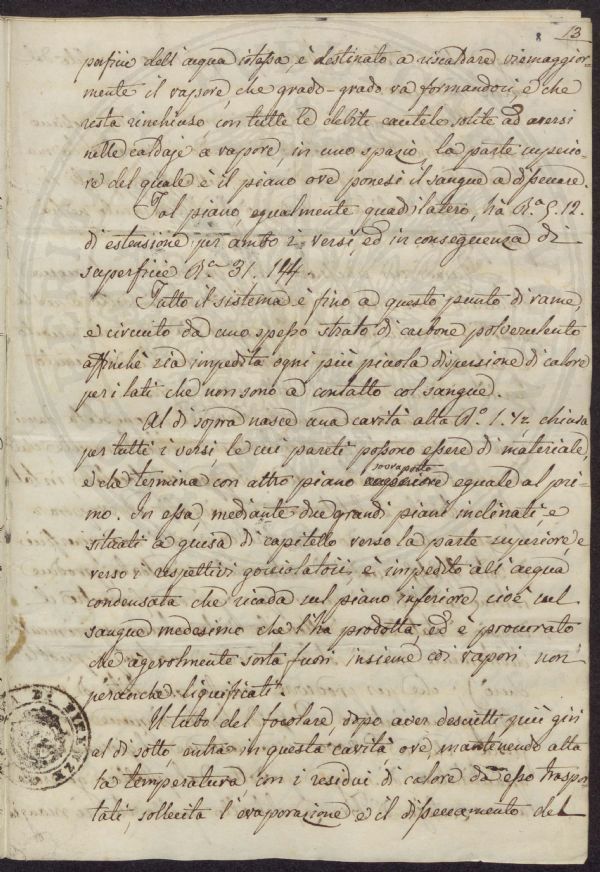 13
perficie dell'acqua istessa, è destinato a riscaldare viemaggior-
mente il vapore, che grado-grado va formandosi, e che
resta rinchiuso con tutte le debite cautele solite ad aversi
nelle caldaje a vapore, in uno spazio, la parte superio-
re del quale è il piano ove ponesi il sangue a disseccare.
Tal piano, egualmente quadrilatero, ha B.a 5. 12.
di estensione per ambo i versi, ed in conseguenza di
superficie B.e 31. 144.
Tutto il sistema è fino a questo punto di rame,
e circuito da uno spesso strato di carbone polverulento
affinchè sia impedita ogni più piccola dispersione di calore
per i lati che non sono a contatto col sangue.
Al di sopra nasce una cavità alta B.o 1. 1/2, chiusa
per tutti i versi, le cui pareti possono essere di materiale,
sovrapposto
e che termina con altro piano superiore eguale al pri-
mo. In essa, mediante due grandi piani inclinati, e
situati a guisa di capitello verso la parte superiore, e
verso i respettivi gocciolatoii, è impedito all'acqua
condensata che ricada sul piano inferiore cioè sul
sangue medesimo che l'ha prodotta, ed è procurato
che agevolmente sorta fuori insieme coi vapori non
peranche liquificati.
Il tubo del focolare, dopo aver descritti più giri
al di sotto, entra in questa cavità, ove, mantenendo alta
la temperatura, con i residui di calore da esso traspor-
tati, sollecita l'evaporazione e il disseccamento del